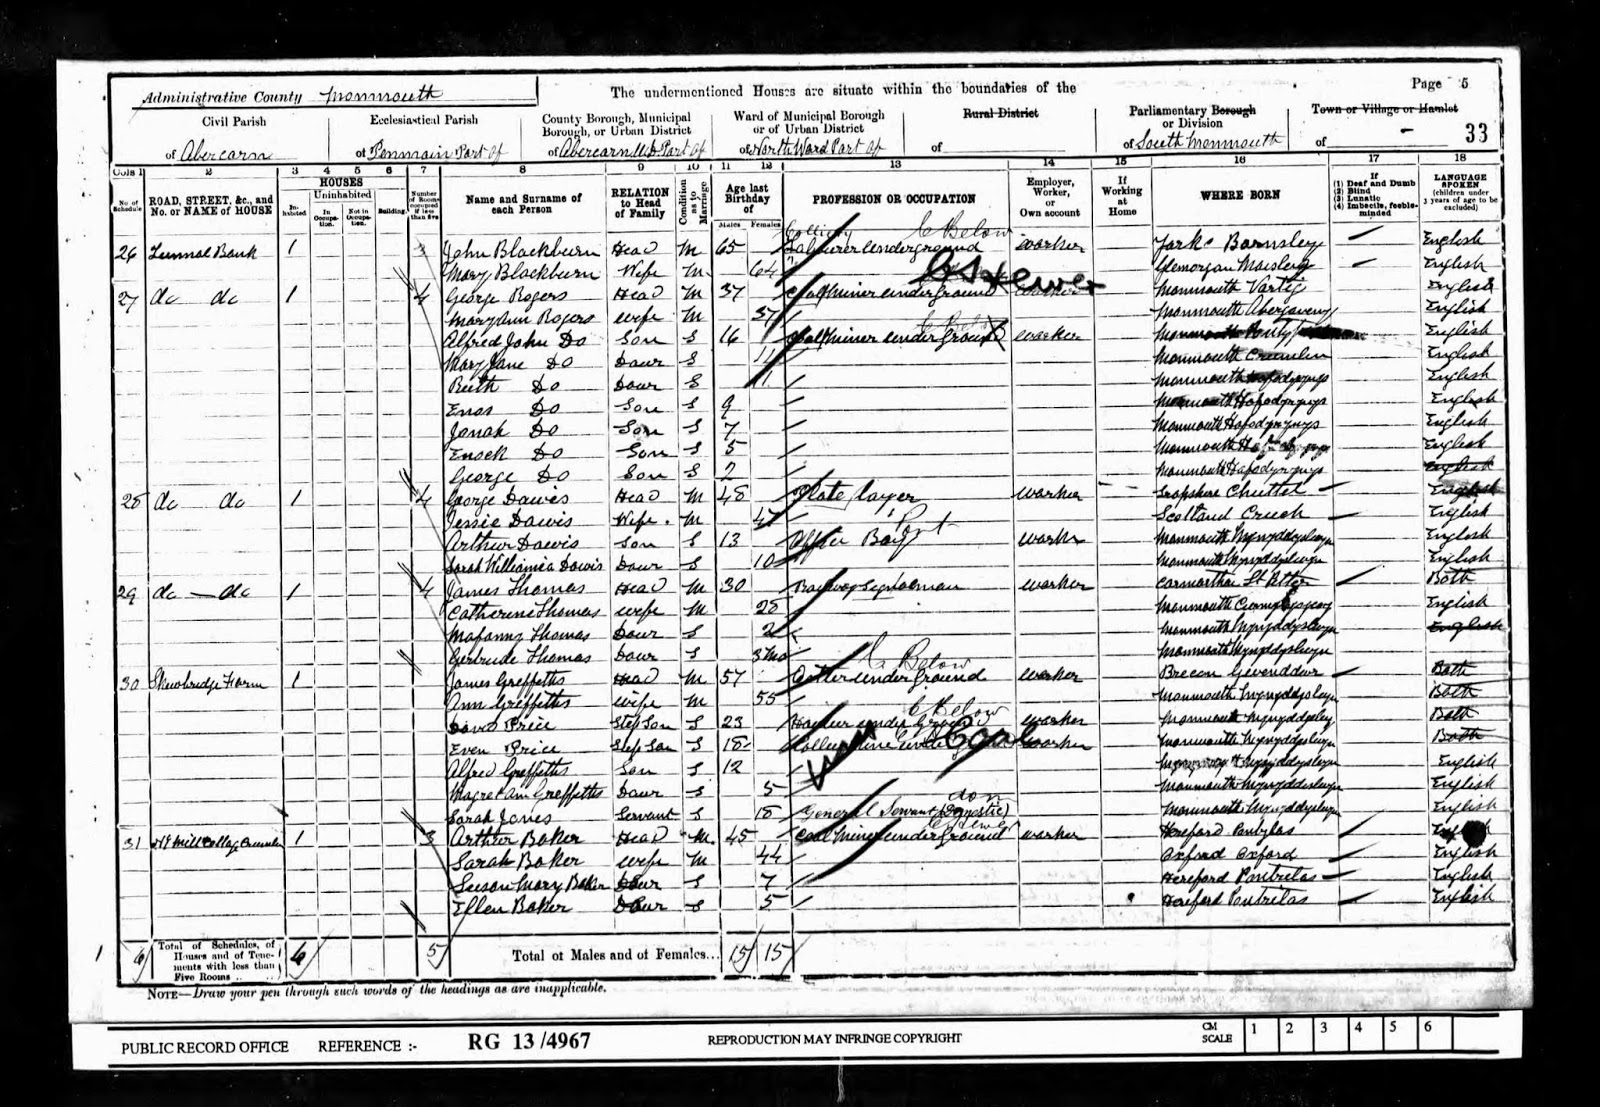 Administrative County Monmouth
The undermentioned Houses are situate within the boundaries of the
Page 5
Civil Parish
of Abercarn
Ecclesiastical Parish
of Penmain Part of
County Borough, Municipal Borough, or Urban District
of Abercarn U.D. Part of
Ward of Municipal Borough or of Urban District
of North Ward Part of
Rural District
of
Parliamentary Borough or Division
of South Monmouth
Town or Village or Hamlet
of -
33
Cols 1 2 3 4 5 6 7 8 9 10 11 12 13 14 15 16 17 18
No. of Schedule
ROAD, STREET, &c., and No. or NAME of HOUSE
HOUSES
Inhabited
Uninhabited
In Occupation
Not in Occupation
Building
Number of Rooms occupied if less than five
Name and Surname of each Person
RELATION to Head of Family
Condition as to Marriage
Age last Birthday of
Males Females
PROFESSION OR OCCUPATION
Employer, Worker, or Own account
If Working at Home
WHERE BORN
If (1) Deaf and Dumb (2) Blind (3) Lunatic (4) Imbecile, feeble-minded
LANGUAGE SPOKEN (children under 3 years of age to be excluded)
Colliery C Below
26 Bank 1 3 John Blackburn Head M 65 Labourer Underground worker York Barnsley English
Mary Blackburn Wife M 64 Glamorgan English
Hewer
27 do do 1 4 George Rogers Head M 37 Coal Miner Underground worker Monmouth Varteg English
Mary Ann Rogers wife M 37 Monmouth Abergavenny English
Alfred John Do Son S 16 Coal Miner underground worker Monmouth English
Mary Jane Do Daur S 11 Monmouth Crumlin English
Ruth Do Daur S 11 Monmouth Hafodyrynys English
Enos Do Son S 9 Monmouth Hafodyrynys English
Jonah Do Son S 7 Monmouth Hafodyrynys English
Enoch Do Son S 5 Monmouth English
George Do Son S 2 Monmouth Hafodyrynys English
28 do do 1 4 George Dawis Head M 48 Plate layer worker English
Jessie Dawis Wife M 47 Scotland English
Arthur Dawis Son S 13 Office Boy worker Monmouth Mynyddyslwyn English
Sarah Williamia Dawis Daur S 10 Monmouth Mynyddyslwyn English
29 do do 1 4 James Thomas Head M 30 Railway Signalman worker Carmarthen Both
Catherine Thomas wife M 28 Monmouth English
Mafanny Thomas Daur S 2 Monmouth Mynyddyslwyn English
Gertrude Thomas Daur S 3 Mo Monmouth Mynyddyslwyn
C Below
30 Farm 1 James Greffeths Head M 57 underground worker Brecon Both
Ann Greffeths wife M 55 Monmouth Mynyddyslwyn Both
C Below
David Price Step Son S 23 Haulier under Ground worker Monmouth Both
Coal
Even Price Step Son S 18 worker Monmouth Mynyddyslwyn Both
Alfred Greffeths Son S 12 Mynyddyslwyn English
Greffeths Daur S 5 Monmouth Mynyddyslwyn English
dom
Sarah Jones Servant S 18 General Servant (Domestic) Monmouth Mynyddyslwyn English
31 1 3 Arthur Baker Head M 45 Coal Miner underground worker Hereford
Sarah Baker wife M 44 Oxford Oxford English
Suson Mary Baker Daur S 7 Hereford Pontrilas English
Ellen Baker Daur S 5 Hereford Pontrilas English
6 Total of Schedules, of Houses and of Tenements with less than Five Rooms .. 6 5 Total of Males and of Females... 15 15
NOTE—Draw your pen through such words of the headings as are inapplicable.
PUBLIC RECORD OFFICE REFERENCE :- RG 13/4967 REPRODUCTION MAY INFRINGE COPYRIGHT CM SCALE 1 2 3 4 5 6